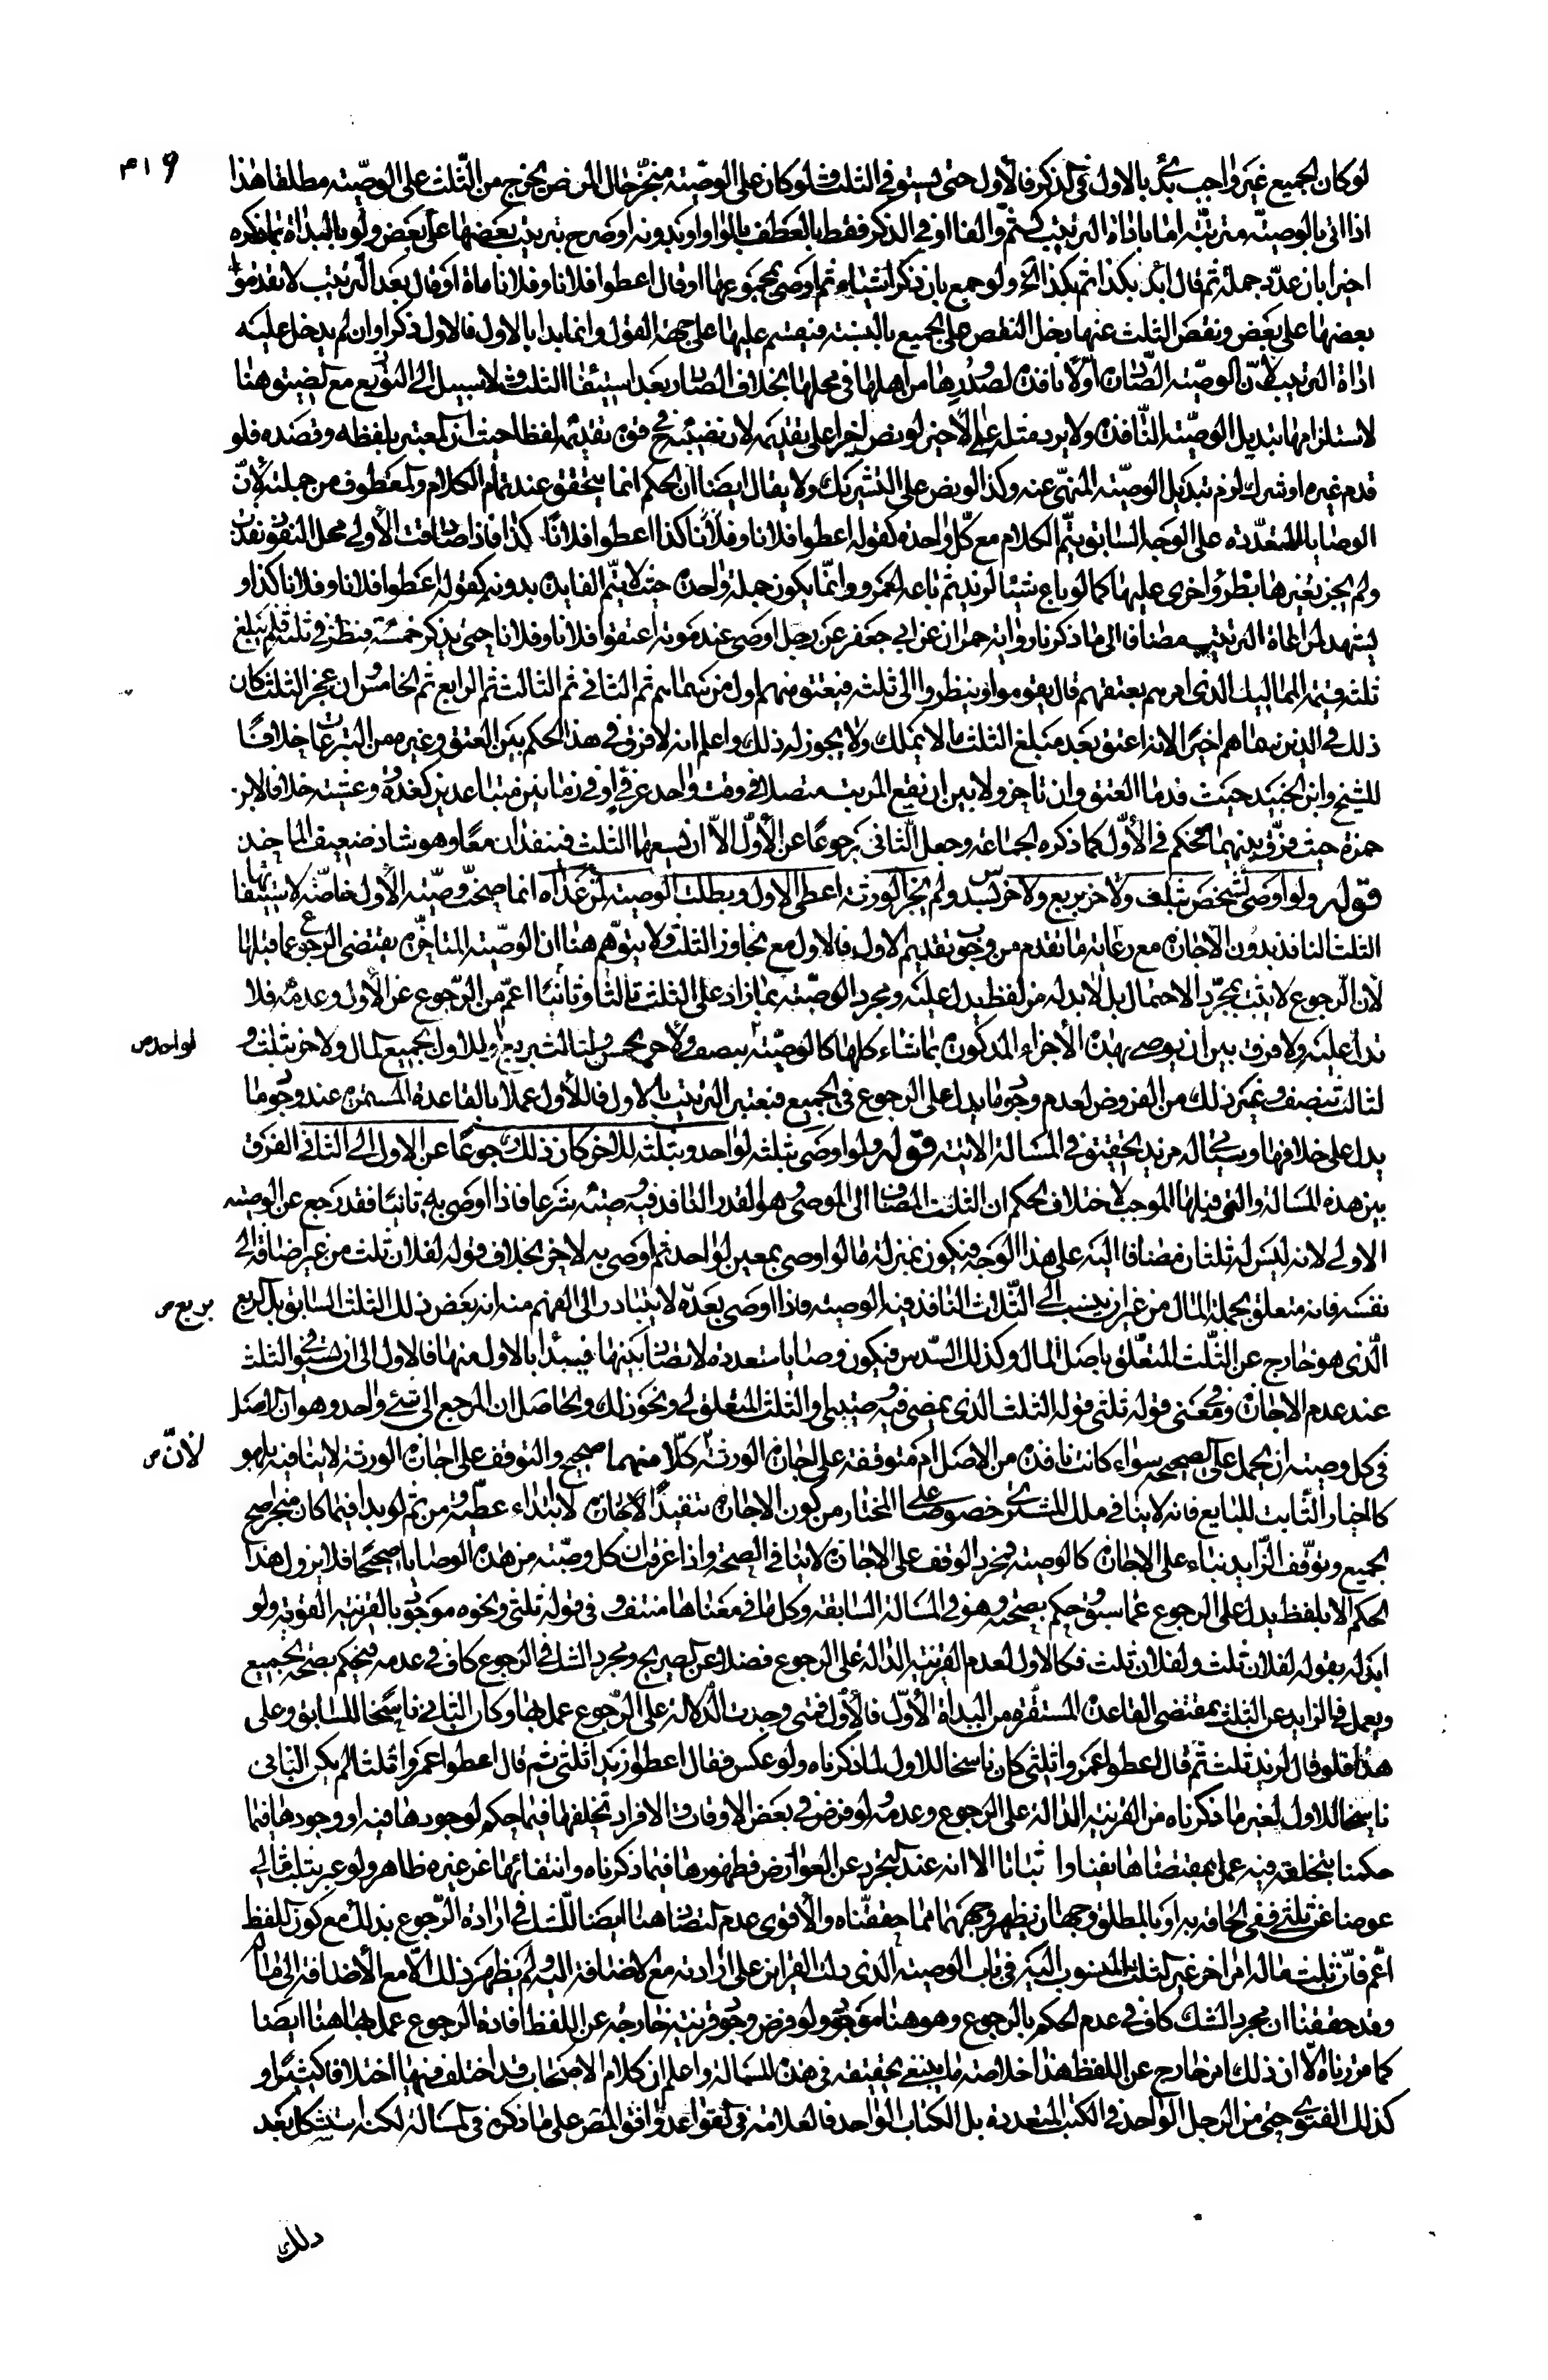 لو كان الجميع غير واجب بدئ بالاول في الذكر فالأول حتى يستوفي الثلث و لو كان على الوصيّته منجز حال المرض يخرج من الثّلث على الوصيّته مطلقا هذا
اذا اتى بالوصيّته مترتّبته امّا باداة الترتيب كثمّ والفا او في الذكر فقط بالعطف بالواو او بدونه او صرح بترتيب بعضها على بعض ولو بالبداة بما ذكره
اخيرا بان عدّد جملة ثم قال ابدؤا بكذا ثم بكذا الخ ولو جمع بان ذكر اشياء ثم اوصى بمجموعها او قال اعطوا فلانا وفلانا ماة او قال بعد الترتيب لا تقدموا
بعضها على بعض ونقص الثلث عنها دخل النقص على الجميع بالنسبته فيقسم عليها على جهة العول وانما بدا بالاول فالاول ذكرا وان لم يدخل عليه
اداة الترتيب لأنّ الوصيّته الصّادرة اولا نافذة لصدورها من اهلها في محلها بخلاف الصّادر بعد استيفا الثلث ولا سبيل الى التوزيع مع التضيق هنا
لاستلزامها تبديل الوصيّته النّافذة ولا يرد مثله على الأخير لو نص اخيرا على تقديمه لان نصّه ح فوق تقديمه لفظا حيث ان المعتبر بلفظه وقصده فلو
قدم غيره او شرك لزم تبديل الوصيّته المنهيّ عنه وكذا لو نص على التشريك ولا يقال ايضا ان الحكم انما يتحقق عند تمام الكلام والمعطوف من جملته لأنّ
الوصايا المتعدّدة على الوجه السابق يتمّ الكلام مع كلّ واحدة كقوله اعطوا فلانا وفلانا كذا اعطوا فلانًا كذا فاذا صادفت الأولى محل النفوذ نفذت
ولم يجز تغيرها بطرؤ اخرى عليها كما لو باع شيئا لزيد ثم باعه لعمرو وانّما يكون جملة واحدة حيث لا يتمّ الفايدة بدونه كقوله اعطوا فلانا وفلانا كذا و
يشهد لمراعاة الترتيب مضافا الى ما ذكرنا رواية حمران عن ابي جعفر عن رجل اوصى عند موته اعتقوا فلانا وفلانا حتى يذكر خمسة فنظر في ثلثه فلم يبلغ
ثلثه قيمة المماليك الذي امرهم بعتقهم قال يقوموا وينظروا الى ثلثه فيعتق منهم اول من سماهم ثم الثاني ثم الثالث ثم الرابع ثم الخامس وان عجز الثلث كان
ذلك في الذين سماهم اخيًرا لانه اعتق بعد مبلغ الثلث ما لا يملك ولا يجوز له ذلك واعلم انه لا فرق في هذا الحكم بين العتق وغيره من التبرعات خلافًا
للشيخ وابن الجنيد حيث قدما العتق وان تاخر ولا بين ان يقع المرتب متصلا في وقت واحد عرفا او في زمانين متباعدين كغدوة وعشيته خلافا لابن
حمزة حيث فرّق بينهما فحكم في الأوّل كما ذكره الجماعة وجعل الثّاني رجوعًا عن الأوّل الّا ان يسعهما الثلث فينفذان معًا وهو شاذ ضعيف الماخذ
قوله ولو اوصى لشخص بثلث ولاخر بربع ولاخر بسدس ولم يجز الورثة اعطى الاول وبطلت الوصيته لمن عداه انما صحّت وصيّته الأول خاصّة لاستيفائها
الثلث النافذ بدون الأجازة مع رعاية ما تقدم من وجوب تقديم الاول فالاول مع تجاوز الثلث ولا يتوّهم هنا ان الوصيّته المتاخرة يقتضي الرجوع عما قبلها
لأن الرّجوع لا يثبت بمجرّد الاحتمال بل لا بد له من لفظ يدل عليه ومجرد الوصيّته بما زاد على الثلث ثالثا وثانيًا اعمّ من الرّجوع عن الأول وعدمه فلا
تدل عليه ولا فرق بين ان يوصي بهذه الأجزاء المذكورة بما شاء كلها كالوصيّته بنصف ولأخر بخمس ولثالث بربع او للاول بجميع المال ولاخر بثلث و لواحد ص
لثالث بنصف وغير ذلك من الفروض لعدم وجود ما يدل على الرجوع في الجميع فيعتبر الترتيب بالاول فاللأول عملا بالقاعدة المستمرة عند وجود ما
يدل على خلافها وسياتي له مزيد تحقيق في المسالة الاتية قوله ولو اوصى بثلثه لواحد وبثلثه للاخر كان ذلك رجوعًا عن الاول الى الثاني الفرق
بين هذه المسالة والتي قبلها الموجب لاختلاف الحكم ان الثلث المضاف الى الموصي هو القدر النافذ فيه وصيته شرعا فاذا اوصى به ثانيًا فقد رجع عن الوصيته
الاولى لانه ليس له ثلثان مضافا اليه على هذا الوجه فيكون بمنزلة ما لو اوصى بمعين لواحد ثم اوصى به لاخر بخلاف قوله لفلان ثلث من غير اضافة الى
نفسه فانه متعلق بجملة المال من غير ان ينسب الى الثّلث النافذ فيه الوصيته فاذا اوصى بعدّه لا يتبادر الى الفهم منه انه بعض ذلك الثلث السابق بل الربع بربع ص
الّذي هو خارج عن الثّلث المتعلّق باصل المال وكذلك السّدس فيكون وصايا متعددة لا تضاد بينها فيبدأ بالاول منها فالاول الى ان يستوفي الثلث
عند عدم الاجازة وفي معنى قوله ثلثي قوله الثلث الذي يمضي فيه وصيتي او الثلث المتعلق لي ونحو ذلك والحاصل ان المرجع الى شئ واحد وهو ان الاصل
في كل وصيته ان يحمل على الصحيحه سواء كانت نافذة من الاصل ام متوقفة على اجازة الورثة كلّا منهما صحيح والتوقف على اجازة الورثة لا ينافيه بل هو لأنّ ص
كالخيار الثّابت للبايع فانه لا ينافي ملك المشتري خصوصا على المختار من كون الاجازة تنفيذًا لاجازة لا ابتداء عطيّة ومن ثم لو بدا فيما كان منجز صح
الجميع وتوقّف الزّايد بناء على الاجازة كالوصيته فمجرد الوقف على الاجازة لا ينافي الصحة واذا عرفت ان كل وصيّته من هذه الوصايا صحيحًا فلا يزول هذا
الحكم الا بلفظ يدل على الرجوع عما سبق وحكم بصحته وهو في المسالة السابقة وكل ما في معناها منتف و في قوله ثلثي ونحوه موجود بالقرينه القوية ولو
ابدله بقوله لفلان ثلث ولفلان ثلث فكالاول لعدم القرينه الدالة على الرجوع فضلا عن الصريح ومجرد الشك في الرجوع كاف في عدمه فيحكم بصحة الجميع
ويعمل في الزايد عن الثلث بمقتضى القاعدة المستقرة من البداة الأوّل فالأول فمتى وجدت الدلالة على الرّجوع عمل بها وكان الثاني ناسخا للسابق وعلى
هذا فلو قال لزيد ثلث ثمّ قال اعطوا عمروا ثلثي كان ناسخا للاول لما ذكرناه ولو عكس فقال اعطوا زيدا ثلثي ثم قال اعطوا عمروا ثلثا لم يكن الثاني
ناسخا للاول لعين ما ذكرناه من القرينه الدالة على الرجوع وعدمه ولو فرض في بعض الاوقات والافراد تخلفها فيما حكم لوجودها فيه او وجودها فيما
حكمنا بتخلفه فيه عمل بمقتضاها نفيا واثباتا الا انه عند التجرد عن العوارض فظهورها فيما ذكرناه وانتفائها عن غيره ظاهر ولو عبر بثلث مالي
عوضا عن ثلثي ففي الحاقه به او بالمطلق وجهان يظهر وجههما مما حققّناه والأقوى عدم التضاد هنا ايضا للشك في ارادة الرّجوع بذلك مع كون اللفظ
اعم فانّ ثلث ماله امر اخر غير الثلث المنسوب اليه في باب الوصيته الذي دلت القراين على ارادته مع الاضافة اليه ولم يظهر ذلك الّا مع الأضافة الى مال
وقد حققنا ان مجرد الشك كاف في عدم الحكم بالرجوع وهو هنا موجود ولو فرض وجود قرينه خارجه عن اللفظ افادة الرجوع عمل بها هنا ايضا
كما مرّرناه الّا ان ذلك امر خارج عن اللفظ هذا خلاصته ما ينبغي تحقيقه في هذه المسالة واعلم ان كلام الاصحاب قد اختلف فيها اختلافا كثيرًا و
كذلك الفتوى حتى من الرجل الواحد في الكتب المتعددة بل الكتاب الواحد فالعلامة في القواعد وافق المص على ما ذكره في المسالة لكنه استشكل بعد
ذلك